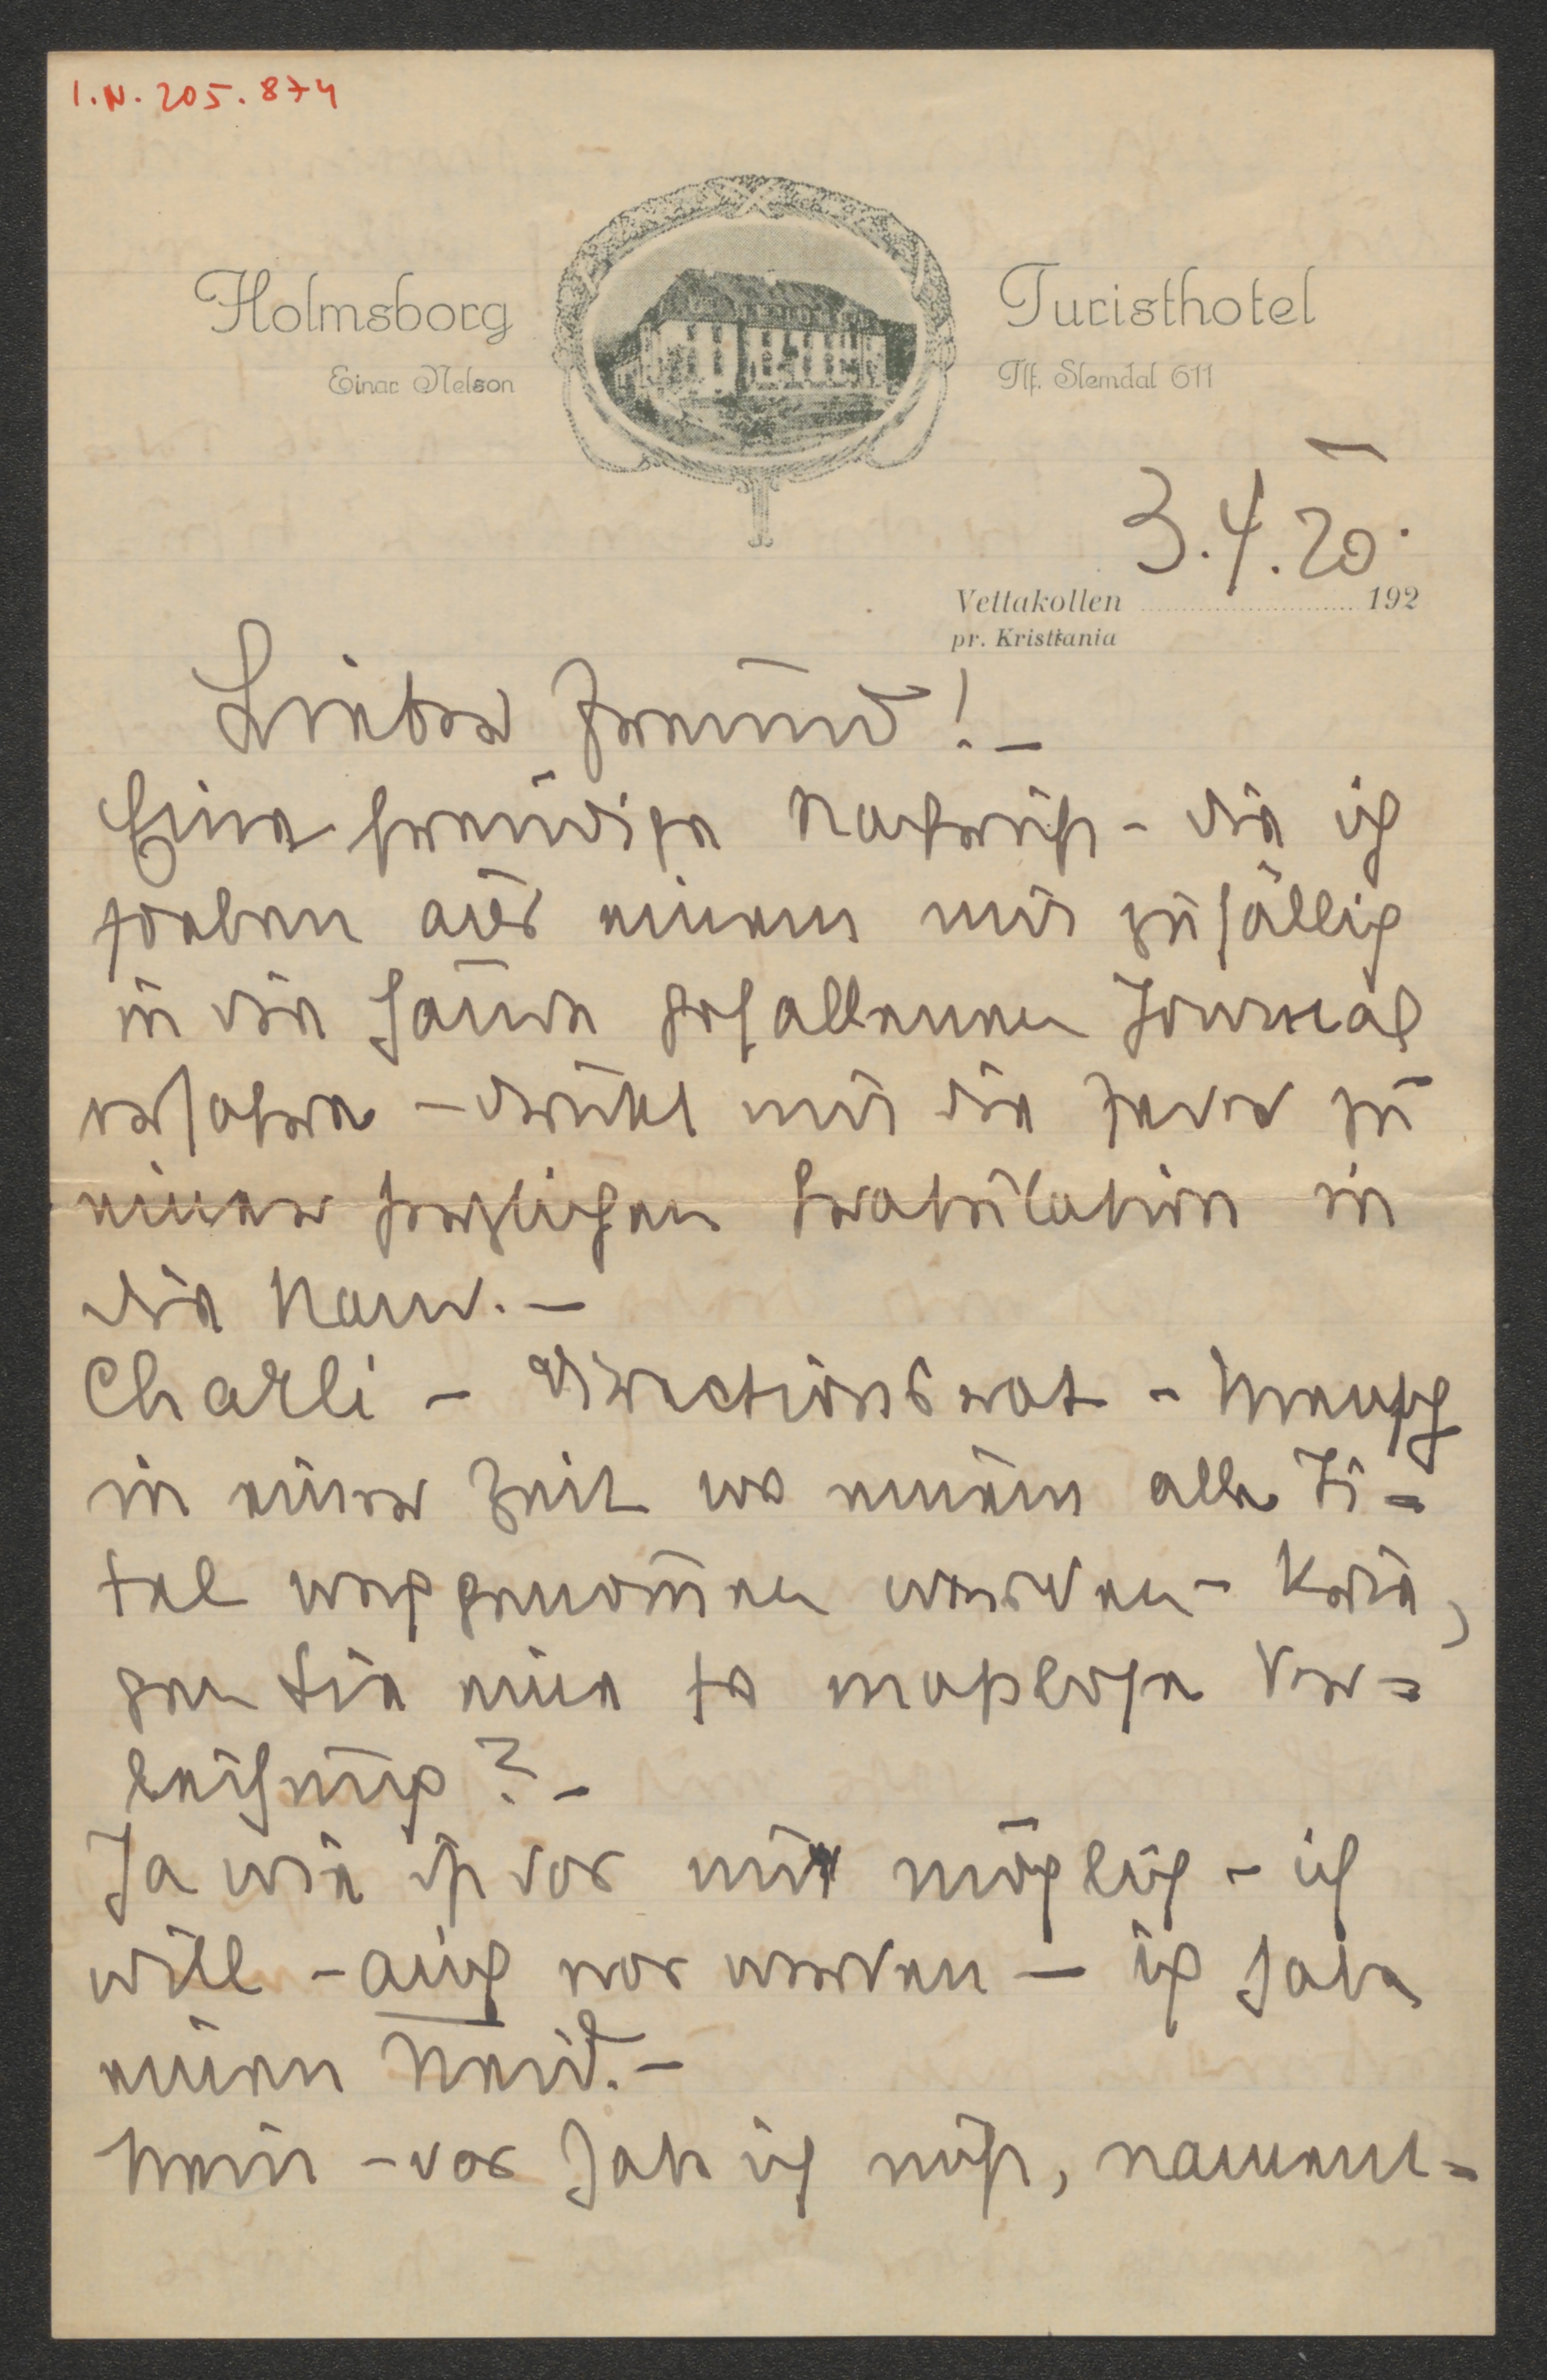 I.N. 205.874
Holmsborg Turisthotel
Einar Nelson Tlf. Slemdal 611
3.4.20.
Vettakollen 192
pr. Kristiania
Lieber Freund! –
Eine freudige Nachricht – die ich
soeben aus einem mir zufällig
in die Hände gefallenen Journal
erfahre – drückt mir die Feder zu
einer herzlichen Gratulation in
die Hand. –
Charli – Directionsrat – Mensch
in einer Zeit wo einem alle Ti-
tel weggenommen werden – krie,
gen Sie eine so maßlose Ver-
leihung? –
Ja wie ist das nur möglich – ich
will – auch was werden – ich habe
einen Neid. –
Nein – das hab ich nicht, nament-